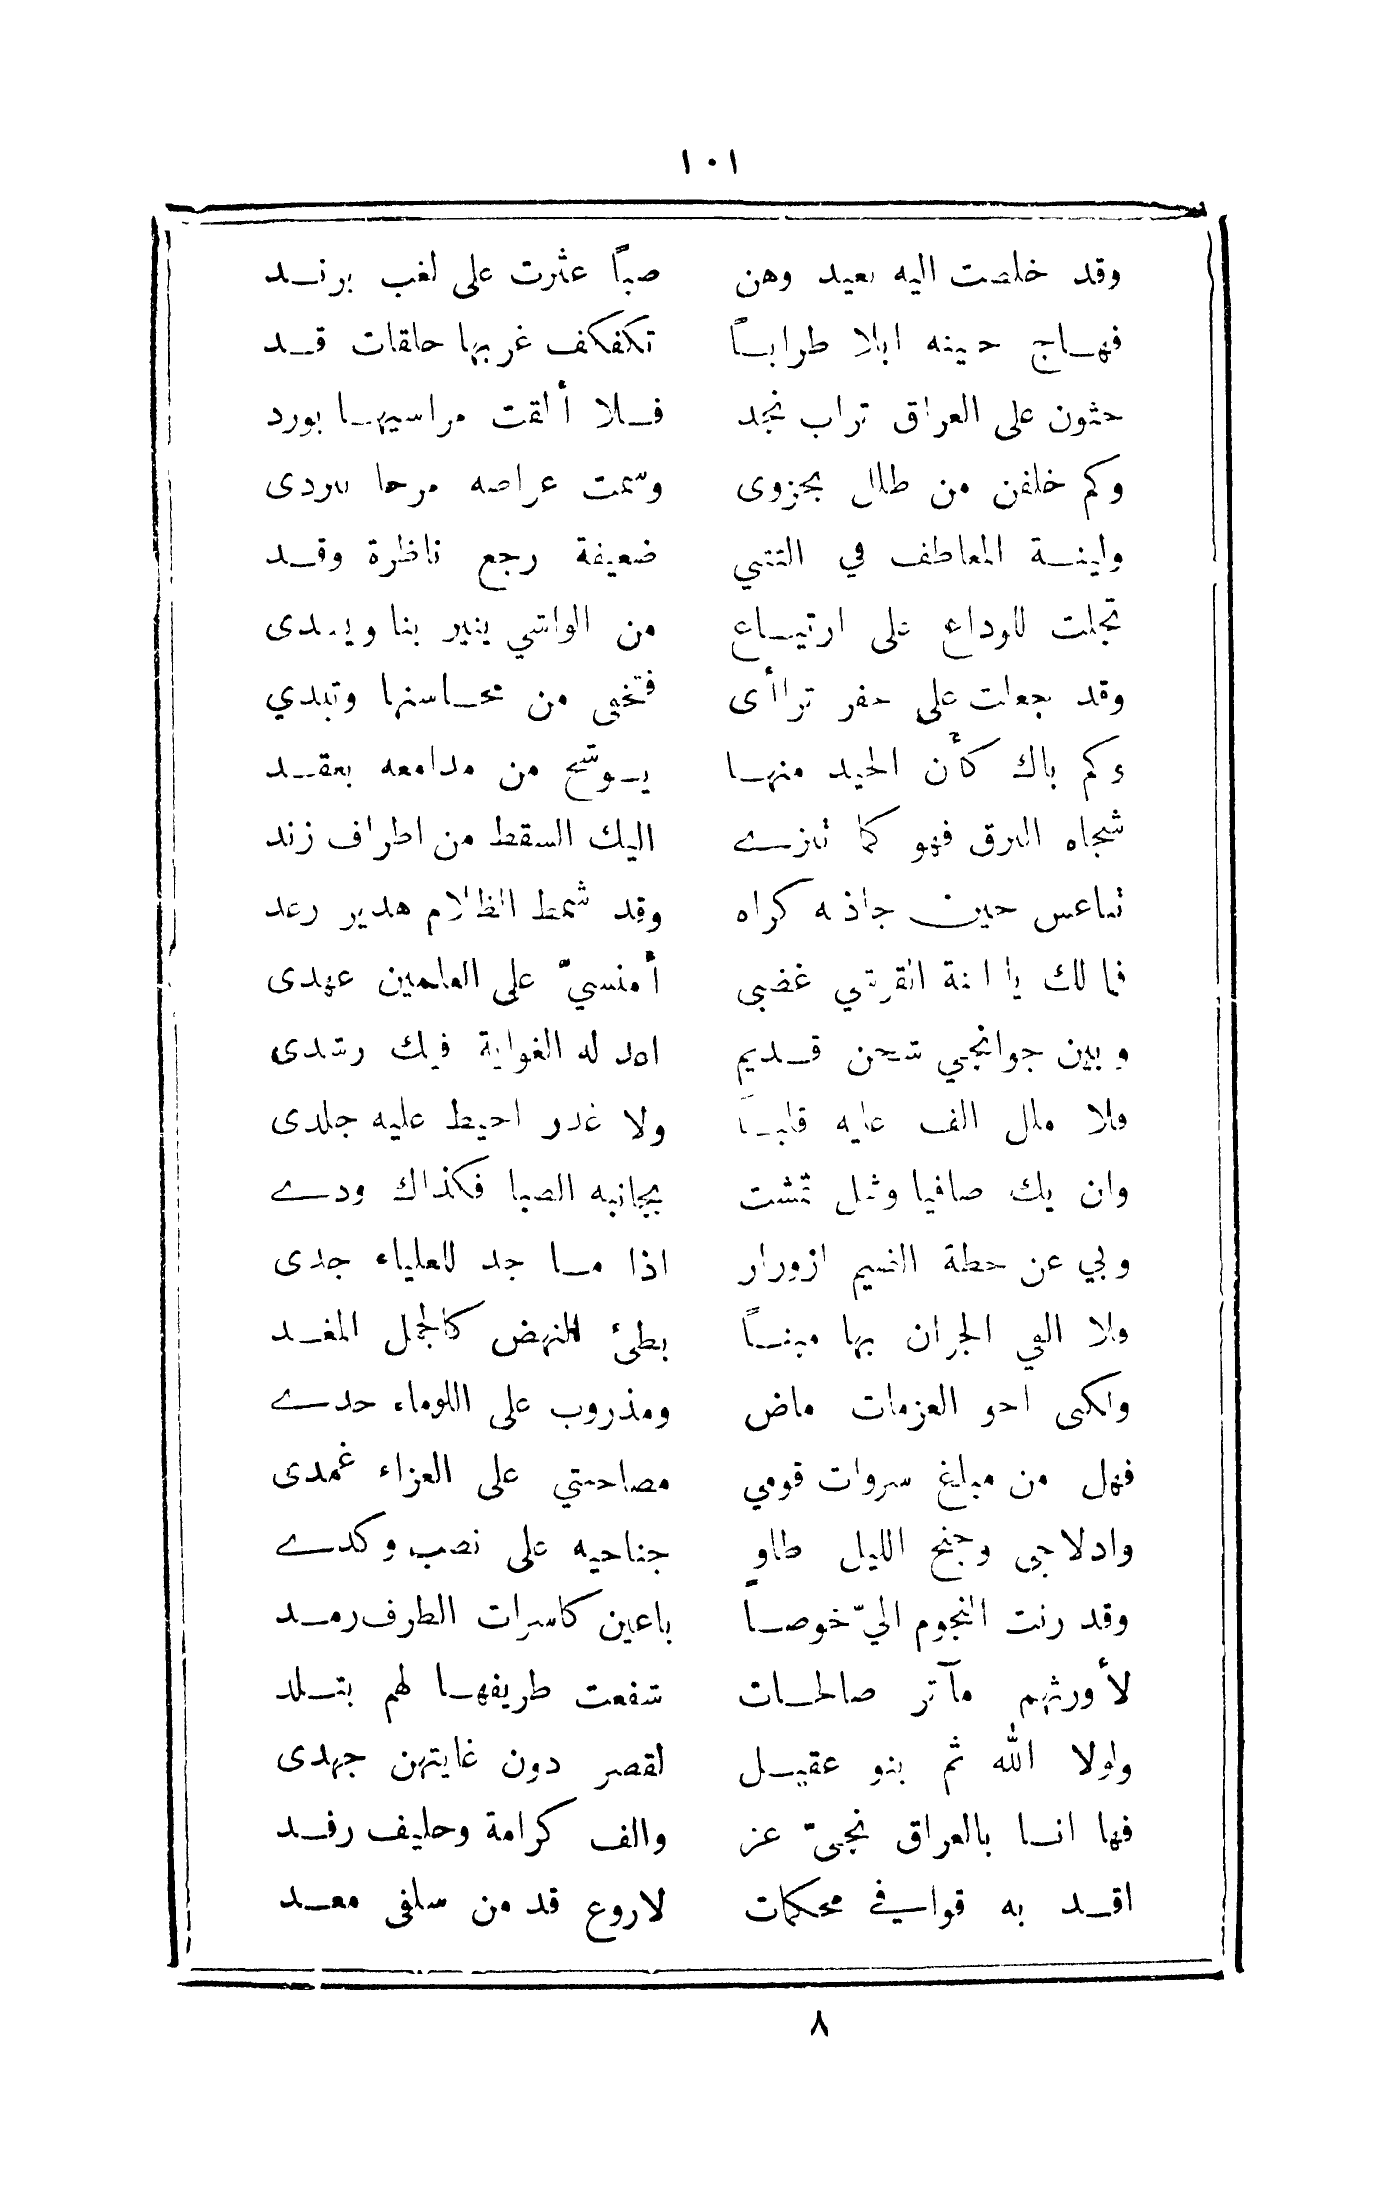 ١٠١
وقد خلصت اليه بعيد وهن صبًا عثرت على لغب برنـد
فهـاج حنينه ابلا طرابـًا تكفكف غربها حلقات قـد
حثون على العراق تراب نجد فـلا ألقت مراسيهـا بورد
وكم خلفن من طلل بحزوى وسمت عراصه مرحا ببردى
ولينـة المعاطف في التثني ضعيفة رجع ناظرة وقـد
تجلت للوداع على ارتيـاع من الواشي ينير بنا ويسدى
وقد جعلت على خفر تراأى فتخفى من محـاسنها وتبدي
وكم باك كأن الجيد منهـا يـوشح من مدامعه بعقـد
شجاه البرق فهو كما تنزى اليك السقط من اطراف زند
تناعس حين جاذبه كراه وقد شمط الظلام هدير رعد
فما لك يا ابنة القرشي غضبى أمنسيّ على العلمين عهدى
وبين جوانحي شجن قـديم اعد له الغواية فيك رشدى
فلا ملل الف عليه قلبـًا ولا غدر احيط عليه جلدى
وان يك صافيا وشل تمشت بجانبه الصبا فكذاك ودى
وبي عن خطة الضيم ازورار اذا مـا جد للعلياء جدى
ولا القي الجران بها مبنـًا بطئ النهض كالجمل المغـد
ولكنى اخو العزمات ماض ومذروب على اللوماء حدى
فهل من مبلغ سروات قومي مصاحبتي على العزاء غمدى
وادلاجى وجنح الليل طاوٍ جناحيه على نصب وكدى
وقد رنت النجوم اليّ خوصـًا باعين كاسرات الطرف رمـد
لأورثهم مآثر صالحـات شفعت طريفهـا لهم بتـلد
ولولا الله ثم بنو عقيـل لقصر دون غايتهن جهدى
فها انـا بالعراق نجىّ عز والف كرامة وحليف رفـد
اقـد به قوافي محكمات لاروع قد من سلفى معـد
٨